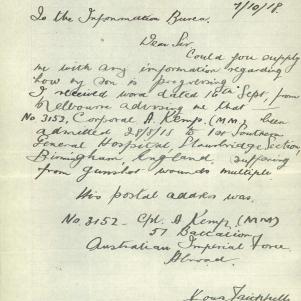 7/10/18.
To the Information Bureau.
Dear Sir
Could you supply
me with any information regarding
how my son is progressing
I received word dated 16th Sept. from
Melbourne advising me that
No. 3152, Corporal A. Kemp. (M.M.) been
admitted 28/8/18 to 1st Southern
General Hospital, Section,
Birmingham, England. suffering
from gunshot wounds multiple
His postal address was.
No. 3152 - Cpl. A Kemp. (M.M)
57 Battalion
Australian Imperial Force
Abroad.
Yours Faithfully